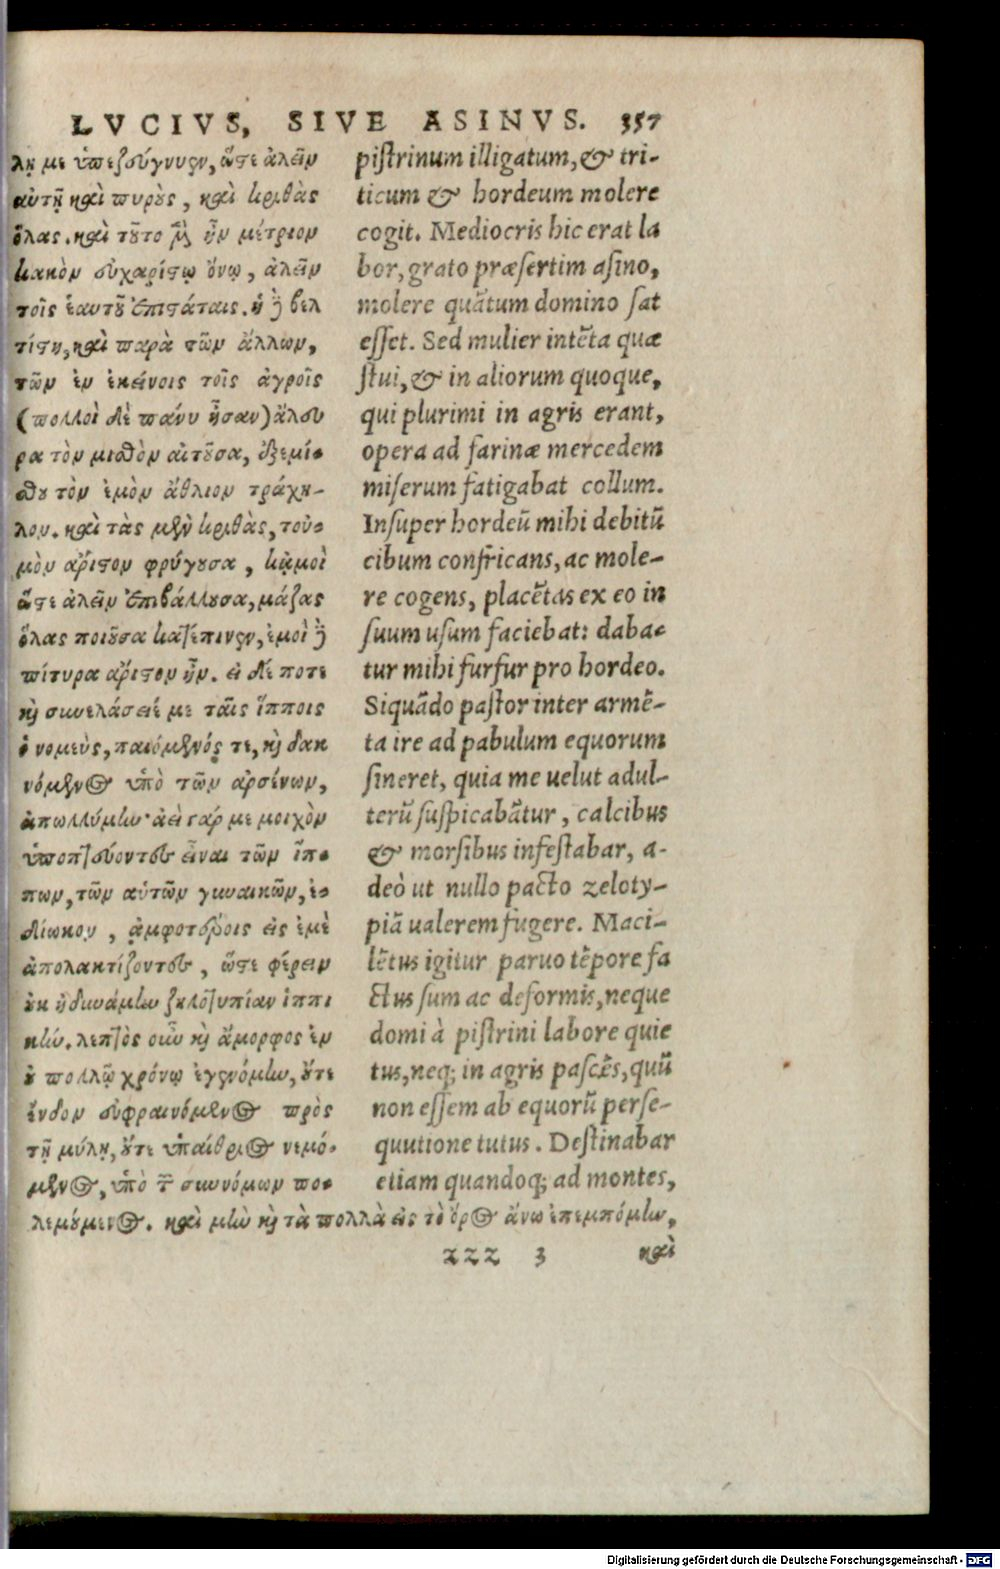 LVCIVS, SIVE ASINVS. 357
λῃ με ὑπεζεύγνυεν, ὥστε ἀλεῖν
αὐτῇ καὶ πυροὺς, καὶ κριθὰς
ὅλας. καὶ τοῦτο μὲν ἦν μέτριον
κακὸν εὐχαρίστῳ ὄνῳ, ἀλεῖν
τοῖς ἑαυτοῦ ἐπιστάταις. ἡ δὲ βελ
τίστη, καὶ παρὰ τῶν ἄλλων,
τῶν ἐν ἐκείνοις τοῖς ἀγροῖς
(πολλοὶ δὲ πάνυ ἦσαν) ἄλευ
ρα τὸν μισθὸν αἰτοῦσα, ἐξεμί-
σθου τὸν ἐμὸν ἄθλιον τράχη-
λον. καὶ τὰς μὲν κριθὰς, τοὐ-
μὸν ἄριστον φρύγουσα, κἀμοὶ
ὥστε ἀλεῖν ἐπιβάλλουσα, μάζας
ὅλας ποιοῦσα κατέπινεν, ἐμοὶ δὲ
πίτυρα ἄριστον ἦν. εἰ δέ ποτε
καὶ συνελάσειέ με ταῖς ἵπποις
ὁ νομεὺς, παιόμενός τε, καὶ δακ
νόμενος ὑπὸ τῶν ἀρσένων,
ἀπωλλύμην· ἀεὶ γάρ με μοιχὸν
ὑποπτεύοντες εἶναι τῶν ἵπ-
πων, τῶν αὐτῶν γυναικῶν, ἐ-
δίωκον, ἀμφοτέροις εἰς ἐμὲ
ἀπολακτίζοντες, ὥστε φέρειν
οὐκ ἠδυνάμην ζηλοτυπίαν ἱππι
κήν. λεπτὸς οὖν καὶ ἄμορφος ἐν
οὐ πολλῷ χρόνῳ ἐγενόμην, οὔτε
ἔνδον εὐφραινόμενος πρὸς
τῇ μύλῃ, οὔτε ὑπαίθριος νεμό-
μενος, ὑπὸ τῶν συννόμων πο-
λεμούμενος. καὶ μὴν καὶ τὰ πολλὰ εἰς τὸ ὄρος ἄνω ἐπεμπόμην,
pistrinum illigatum, & tri-
ticum & hordeum molere
cogit. Mediocris hic erat la
bor, grato præsertim asino,
molere quãtum domino sat
esset. Sed mulier intẽta quæ
stui, & in aliorum quoque,
qui plurimi in agris erant,
opera ad farinæ mercedem
miserum fatigabat collum.
Insuper hordeũ mihi debitũ
cibum confricans, ac mole-
re cogens, placẽtas ex eo in
suum usum faciebat: daba-
tur mihi furfur pro hordeo.
Siquãdo pastor inter armẽ-
ta ire ad pabulum equorum
sineret, quia me uelut adul-
terũ suspicabãtur, calcibus
& morsibus infestabar, a-
deò ut nullo pacto zeloty-
piã ualerem fugere. Maci-
lẽtus igitur paruo tẽpore fa
ctus sum ac deformis, neque
domi à pistrini labore quie
tus, neq; in agris pascẽs, quũ
non essem ab equorũ perse-
quutione tutus. Destinabar
etiam quandoq; ad montes,
zzz 3 καὶ
Digitalisierung gefördert durch die Deutsche Forschungsgemeinschaft - DFG